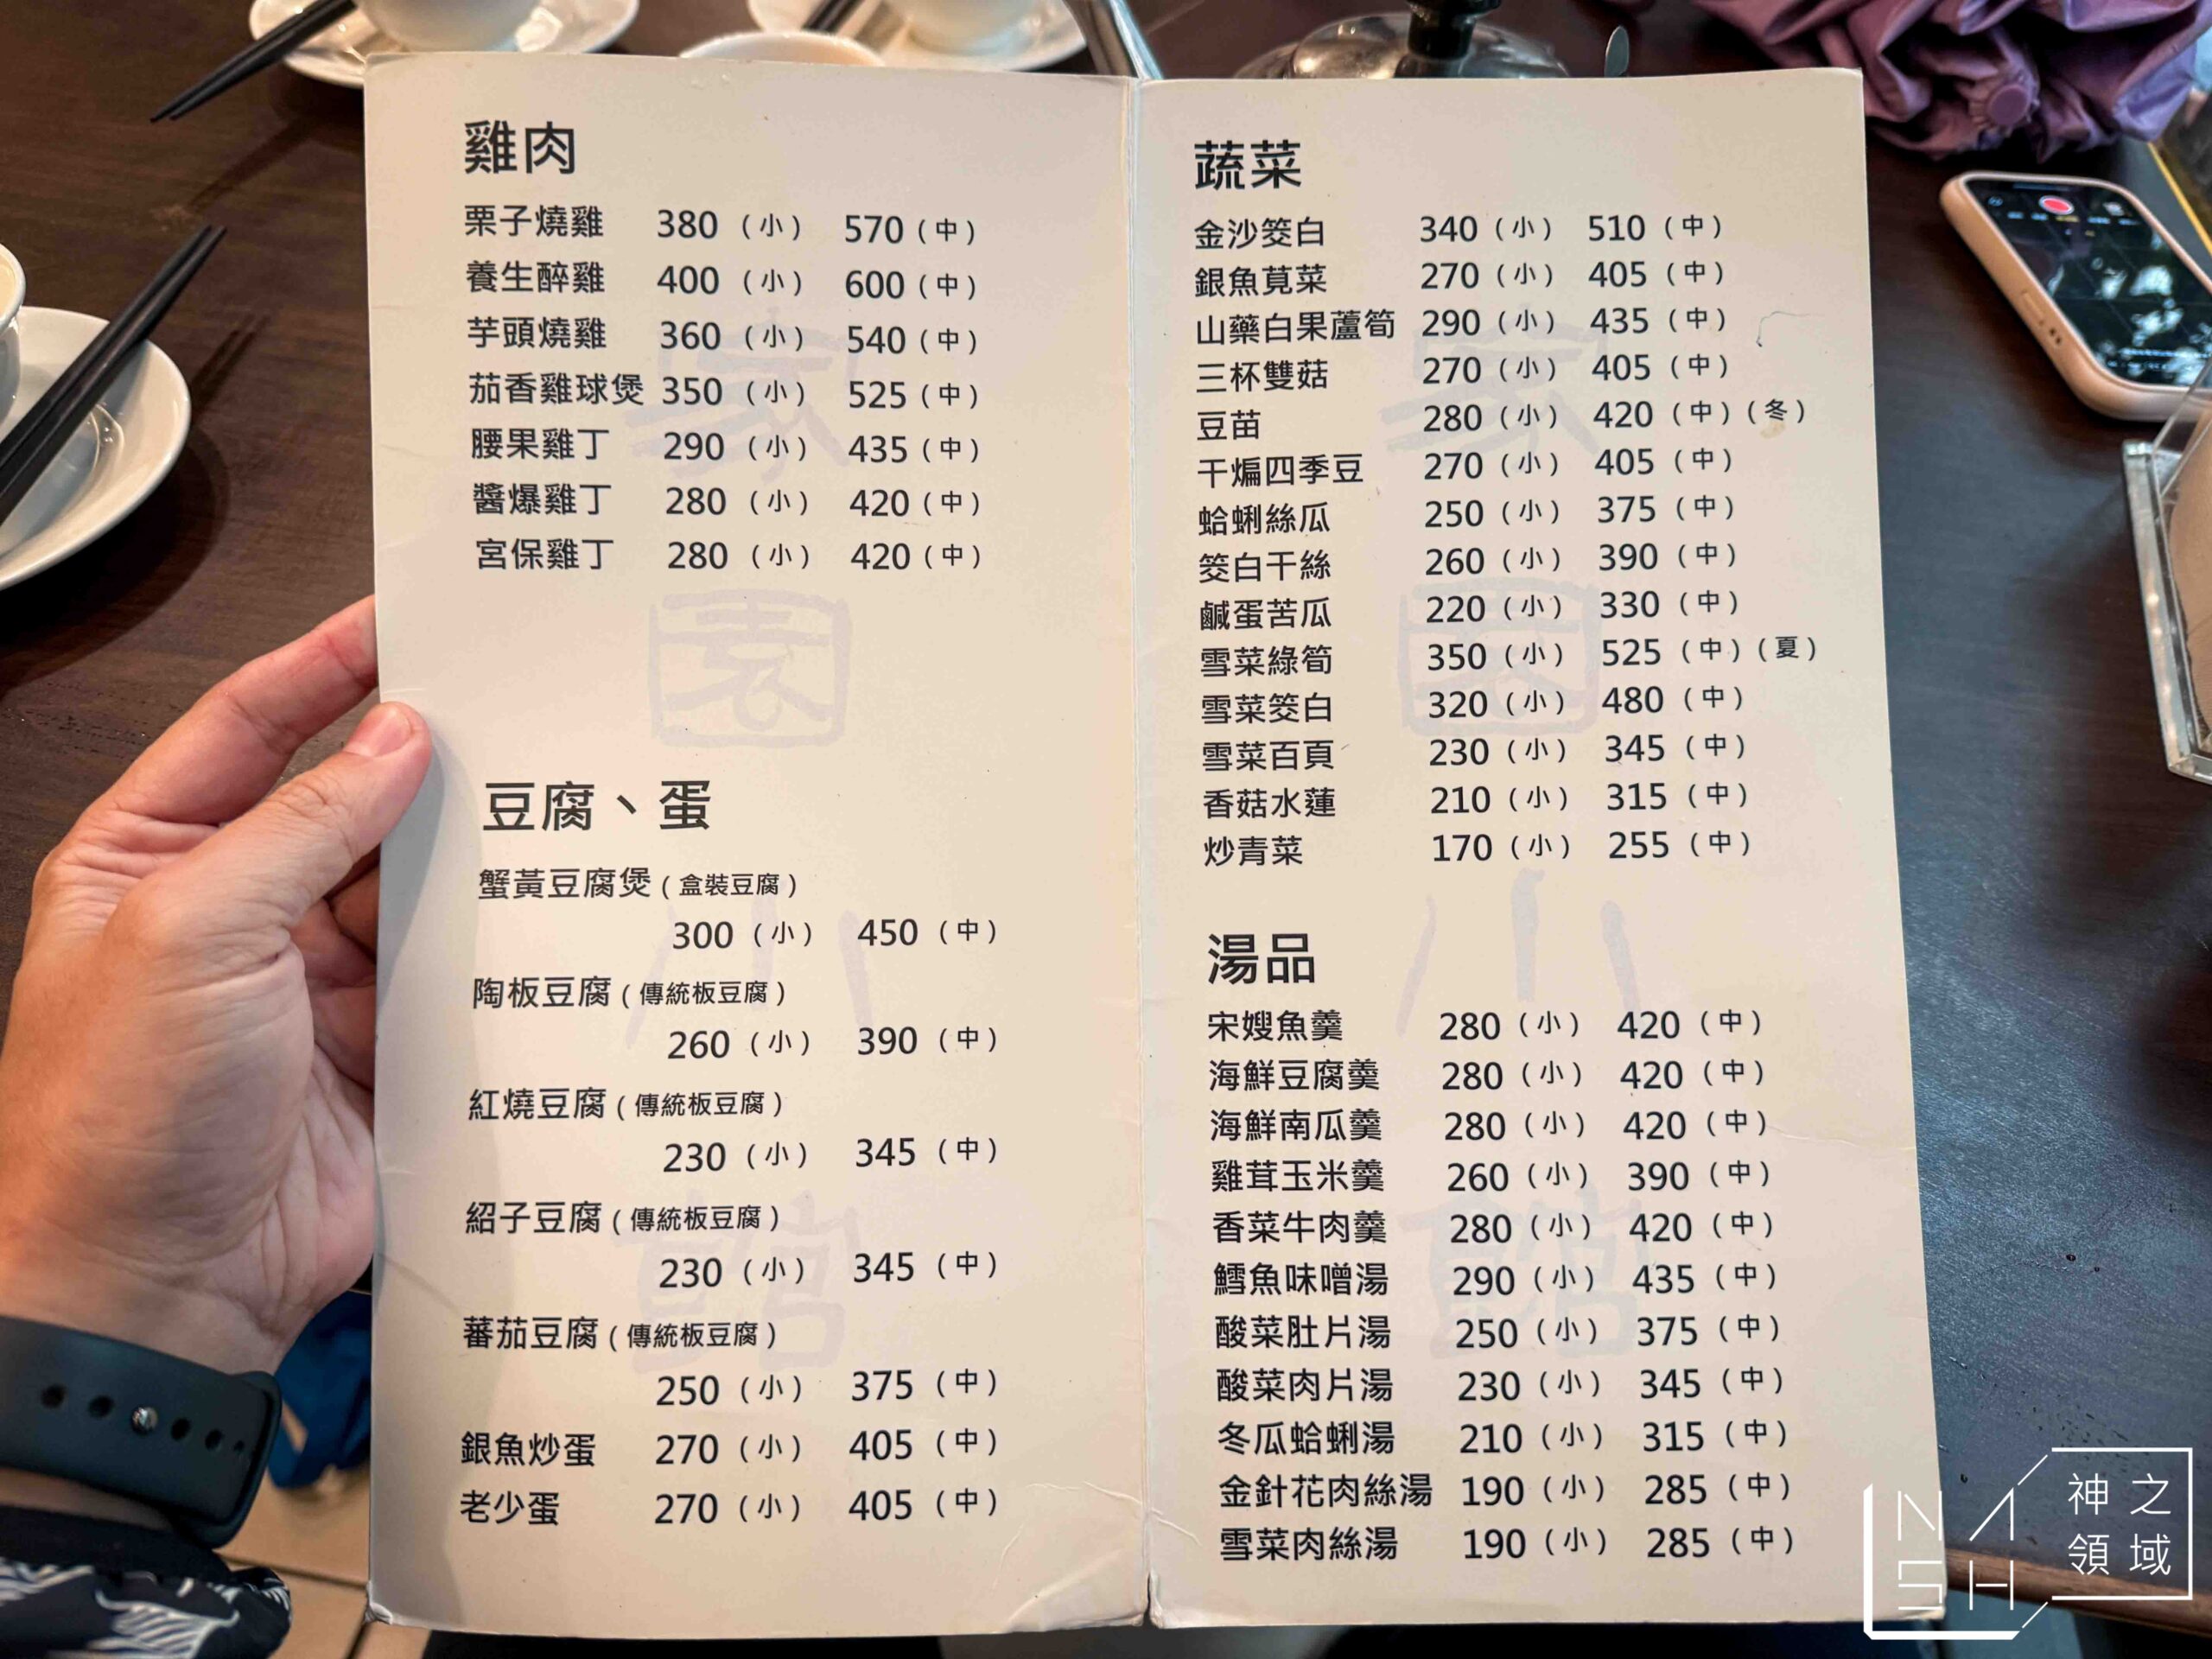 雞肉
栗子燒雞 380 (小) 570 (中)
養生醉雞 400 (小) 600 (中)
芋頭燒雞 360 (小) 540 (中)
茄香雞球煲 350 (小) 525 (中)
腰果雞丁 290 (小) 435 (中)
醬爆雞丁 280 (小) 420 (中)
宮保雞丁 280 (小) 420 (中)
豆腐、蛋
蟹黃豆腐煲 (盒裝豆腐)
300 (小) 450 (中)
陶板豆腐 (傳統板豆腐)
260 (小) 390 (中)
紅燒豆腐 (傳統板豆腐)
230 (小) 345 (中)
紹子豆腐 (傳統板豆腐)
230 (小) 345 (中)
蕃茄豆腐 (傳統板豆腐)
250 (小) 375 (中)
銀魚炒蛋 270 (小) 405 (中)
老少蛋 270 (小) 405 (中)
家園小館
蔬菜
金沙筊白 340 (小) 510 (中)
銀魚莧菜 270 (小) 405 (中)
山藥白果蘆筍 290 (小) 435 (中)
三杯雙菇 270 (小) 405 (中)
豆苗 280 (小) 420 (中) (冬)
干煸四季豆 270 (小) 405 (中)
蛤蜊絲瓜 250 (小) 375 (中)
筊白干絲 260 (小) 390 (中)
鹹蛋苦瓜 220 (小) 330 (中)
雪菜綠筍 350 (小) 525 (中) (夏)
雪菜筊白 320 (小) 480 (中)
雪菜百頁 230 (小) 345 (中)
香菇水蓮 210 (小) 315 (中)
炒青菜 170 (小) 255 (中)
湯品
宋嫂魚羹 280 (小) 420 (中)
海鮮豆腐羹 280 (小) 420 (中)
海鮮南瓜羹 280 (小) 420 (中)
雞茸玉米羹 260 (小) 390 (中)
香菜牛肉羹 280 (小) 420 (中)
鱈魚味噌湯 290 (小) 435 (中)
酸菜肚片湯 250 (小) 375 (中)
酸菜肉片湯 230 (小) 345 (中)
冬瓜蛤蜊湯 210 (小) 315 (中)
金針花肉絲湯 190 (小) 285 (中)
雪菜肉絲湯 190 (小) 285 (中)
家園小館
NASH
神之領域